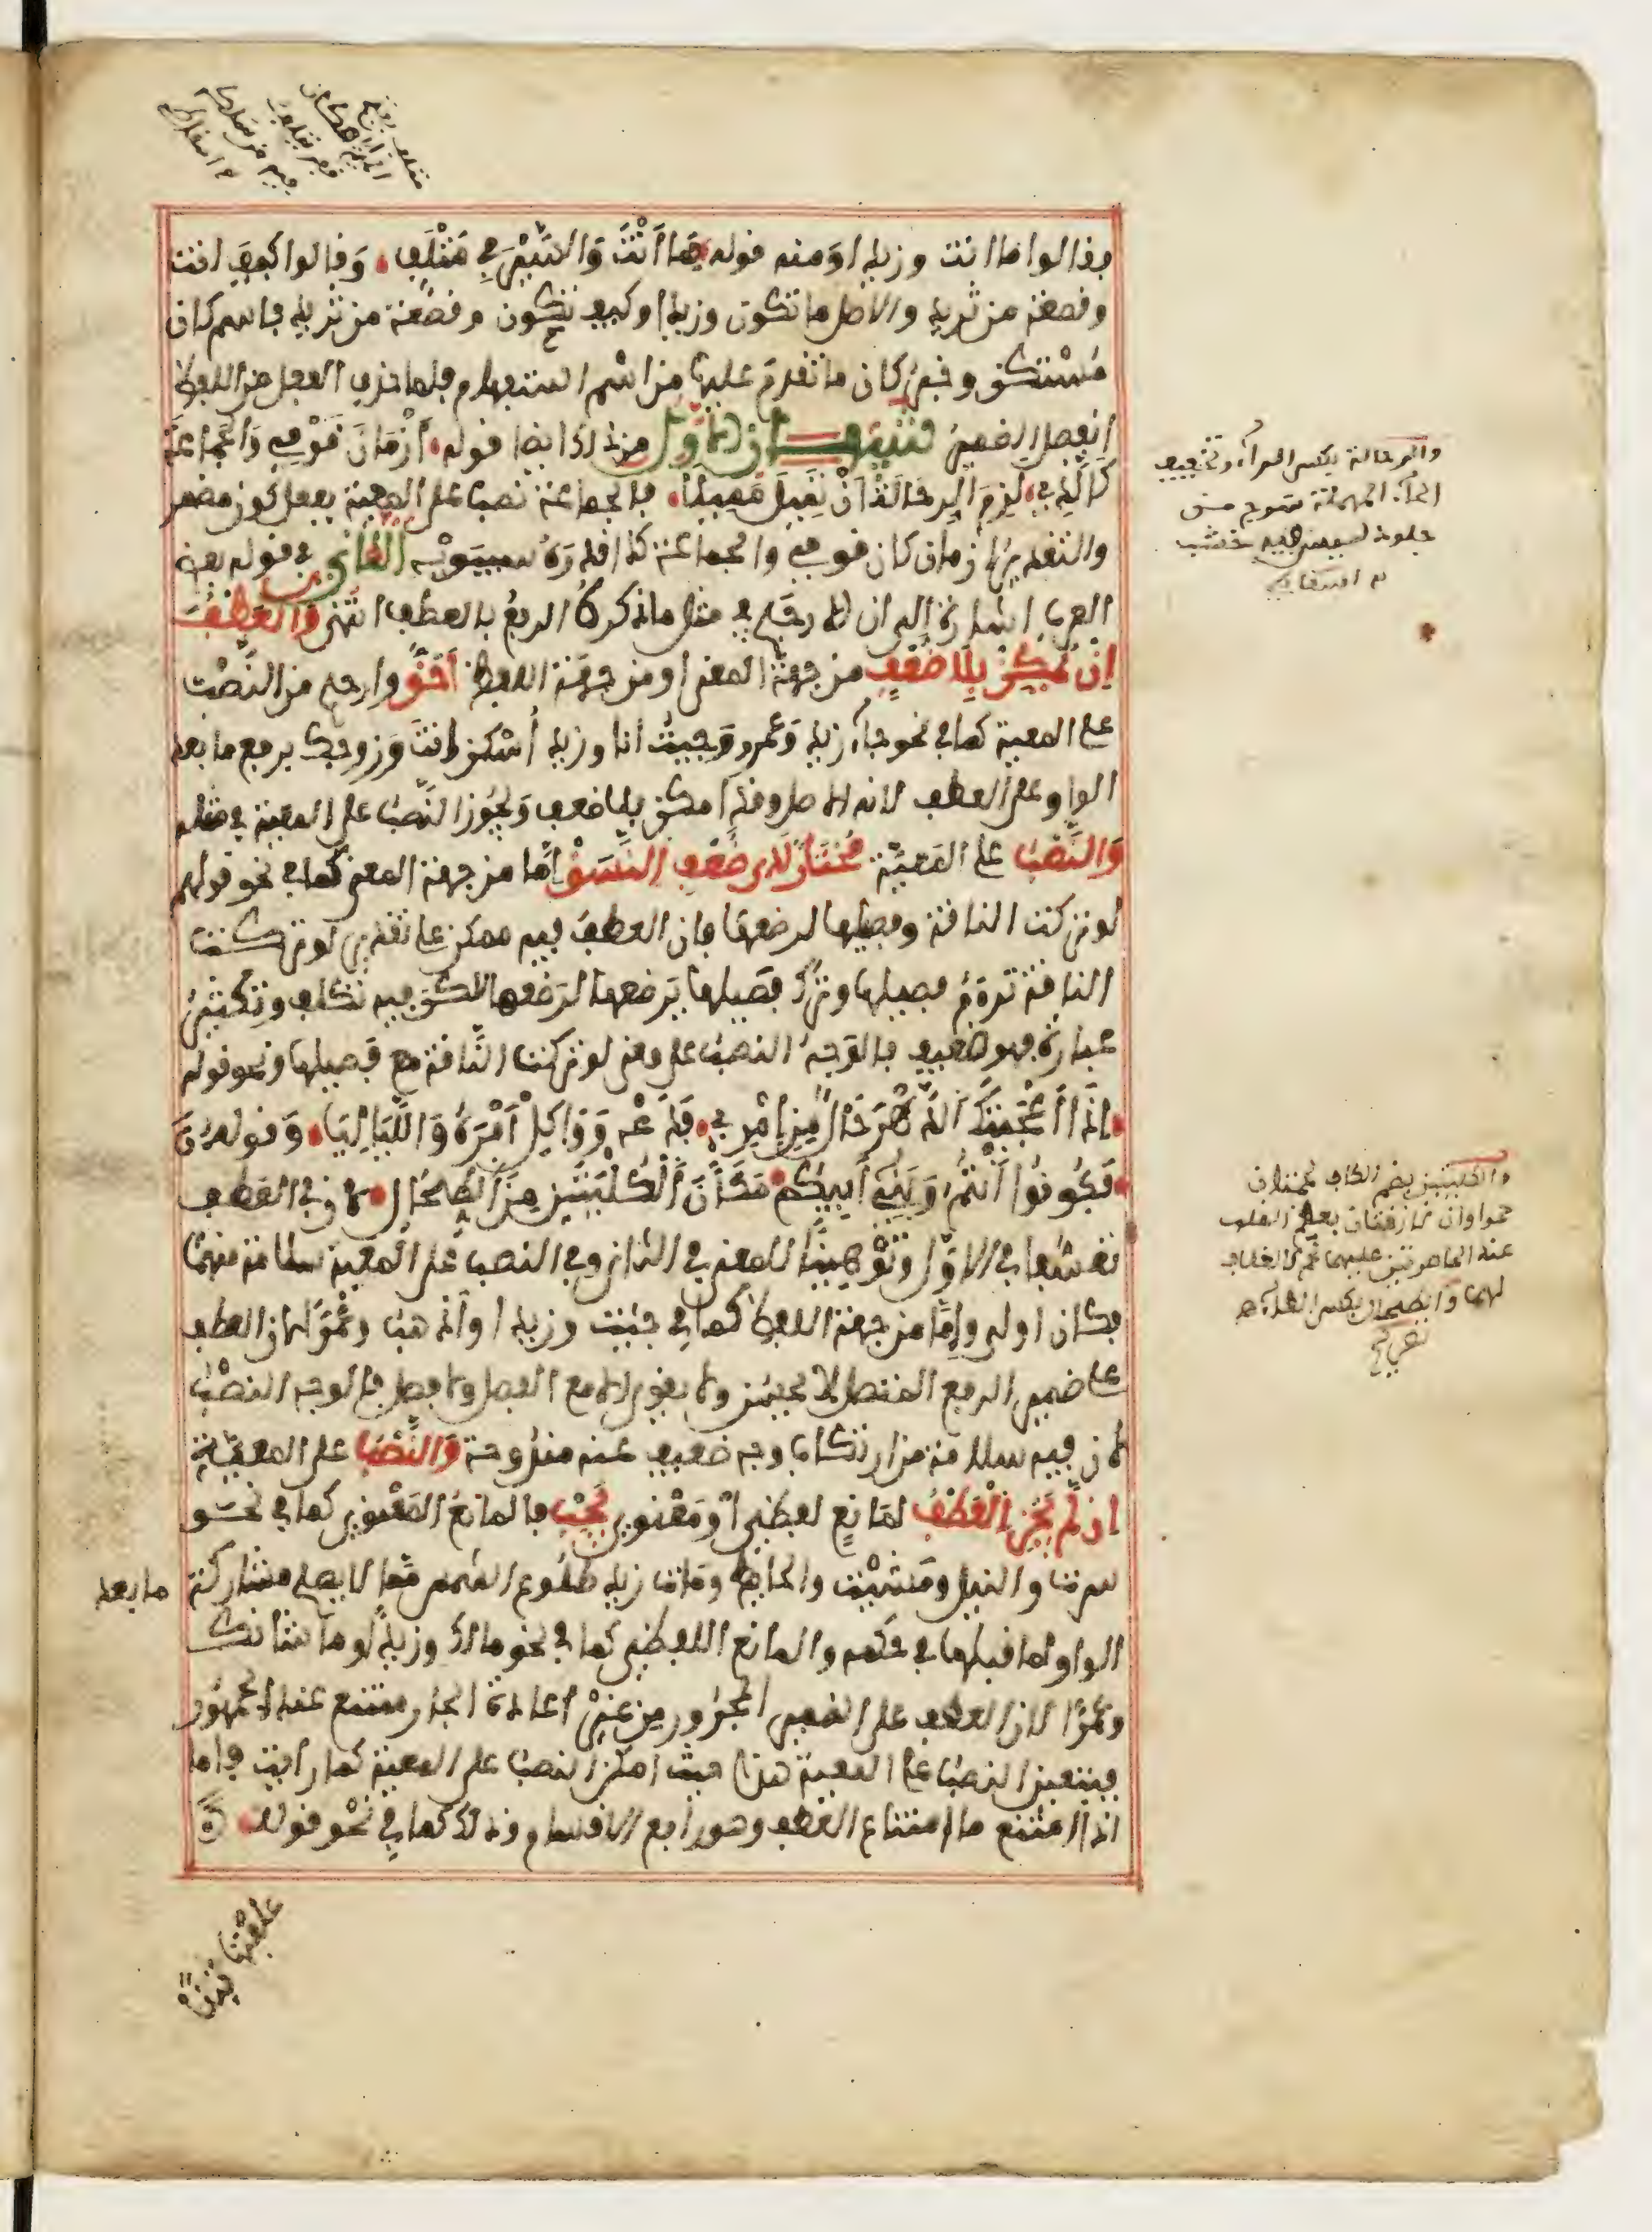 فقالوا ما انت وزيدا ومنه قوله ما أَنْتَ وَالسَّيْرَ فِي مَتْلَفِ وَقالوا كيف انت
وقصعة من ثريد والاصل ما تكون وزيدا وكيف تكون وقصعة من ثريد فاسم كان
مُسْتكن وخبر كان ما تقدم عليها من اسْم استفهام فلما حذف الفعل من اللفظ
انفصل الضمير تنبيهـــان الاوّل من ذلك ايضا قوله أَزْمَانَ قَوْمِي وَالجَمَاعَةَ
كَالَّذِي لَزِمَ الرِّحَالَةَ أَنْ تَمِيلَ مَمِيلَا فالجماعة نصب على المعية بفعل كون مضمر
والتقدير ازمان كان قومي والجماعة كذا قدرَهُ سيبَوَيْه الثاني في قوله بعض
العرب اشارة إلى ان الارجح في مثل ما ذكرهُ الرفعُ بالعطف انتهى وَالعَطْفُ
إِنْ يُمْكِنْ بِلَا ضُعْفٍ من جهة المعنى او من جهة اللفظ أَحَقُّ وارجح من النَّصْب
على المعية كما في نحو جاء زيد وَعمرو وَجيتُ انا وزيد اُسْكن انتَ وَزوجك برفع ما بعد
الواو على العطف لانه الاصل وقد امكن بلا ضعف وَيجُوز النَّصْبُ على المعية في مثله
وَالنَّصْبُ على المَعيّة مُخْتَارٌ لَدَى ضُعْفِ النَّسَقْ إمّا من جهة المعنى كما في نحو قولهم
لو تركت الناقة وفصيلها لرضعها فان العطف فيه ممكن على تقدير لو تركــت
الناقة ترأم فصيلها وترك فصيلها يَرضعها لرَضعها لكن فيه تكلف وتكثير
عبارة فهو ضعيف فالوَجه النصب على معنى لو تركت النَّاقة مع فصيلها ونحو قوله
إِذَا أَعْجَبَتْكَ الدَّهْرَ حَالٌ مِنِ امْرِيءٍ فَدَعْهُ وَوَاكِلْ أَمْرَهُ وَاللَّيَالِيَا وَقوله
فَكُونُوا أَنْتُمُ وَبَنِي أَبِيكُم مَكَانَ الْكُلْيَتَيْنِ مِنَ الطِّحَالِ لان في العطف
تعسّفا في الاوّل وَتَوْهِينًا للمعنى في الثاني وفي النصب على المعية سلامة منهما
فكان اولى وإمّا من جهة اللفظ كما في جيت وزيدا واذهب وعَمرًا لان العطف
على ضمير الرفع المتصل لا يحسن ولا يقوى الا مع الفصل ولا فصل فالوجه النصْبُ
لان فيه سلامة من ارتكاب وجه ضعيف عنه مندوحة وَالنَّصْبُ على المعيّة
إن لَّمْ يَجُزِ الْعَطْفُ لمَانعٍ لفظي أوْ مَعْنوي يَجِبْ فالمانعُ المَعْنوي كما في نحــو
سرت والنيل ومَشَيْت والحائط ومَات زيد طلُوع الشمس مما لا يصلح مشاركة ما بعد
الواو لما قبلها في حكمه والمانع اللفظي كما في نحو مالك وزيدًا وما شأنك
وعَمْرًا لان العطف على الضمير المجرور من غير اعادة الجار ممتنع عند الجمهور
فيتعين النصب على المعية هذا حيث امكن النصب على المعية كما رايت واما
اذا امتنع مع امتناع العطف وهو رابع الاقسام وذلك كما في نحو قوله
علفتها تبنا
والرحالة بكسر الراء وتخفيف
الحاء المهملة سرج من
جلود ليس فيه خشب
والكليتين بضم الكاف لحمتان
حمراوان لازقتان بعظم الصلب
عند الخاصرتين عليهما شحم كالغلاف
لهما والطحال بكسر الطاء
تصريح